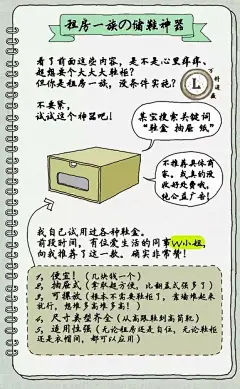 租房一族の储鞋神器
看了前面这些内容，是不是心里痒痒、
超想要个大大大鞋柜？
但你是租房一族，没条件实施？
L
下料说藏
不要紧，
试试这个神器吧！
某宝搜索关键词
“鞋盒 抽屉 纸”
不推荐具体商
家，我真的没
收好处费哦，
纯公益广告！
我自己试用过各种鞋盒。
前段时间，有位爱生活的同事W小姐，
向我推荐了这一款。确实非常赞！
1，便宜！（几块钱一个）
2，抽屉式（拿取超方便，比翻盖式强多了）
3，可摞放（根本不需要鞋柜了，靠墙堆起来
就行，想堆多高堆多高！）
4，尺寸类型齐全（从高跟鞋到高筒靴）
5，适用性强（无论租房还是自住，无论鞋柜
还是衣帽间，都可以应用）